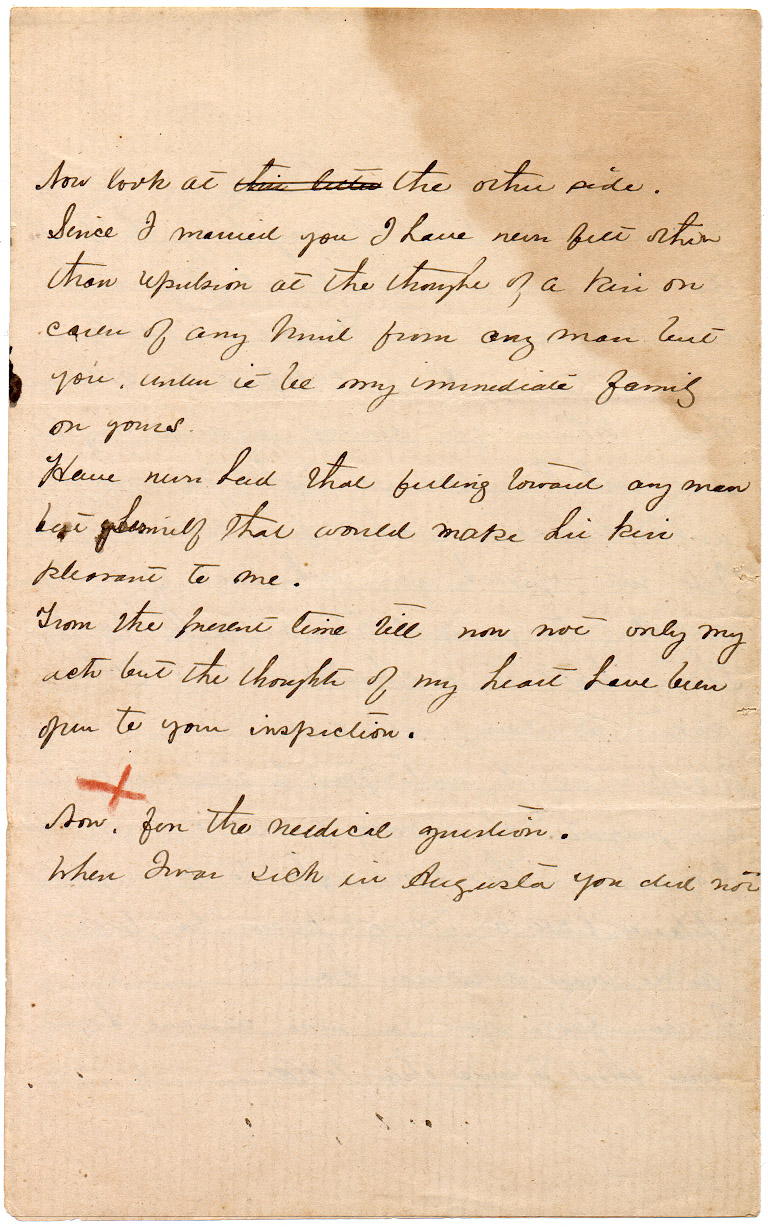 Now look at this letter the other side.
Since I married you I have never felt other
than repulsion at the thought of a kiss or
caress of any kind from any man but
you, unless it be my immediate family
or yours.
Have never had that feeling toward any man
but himself that would make his kiss
pleasant to me.
From the present time till now not only my
acts but the thoughts of my heart have been
open to your inspection.
Now, for the medical question.
When I was sick in Augusta you did not